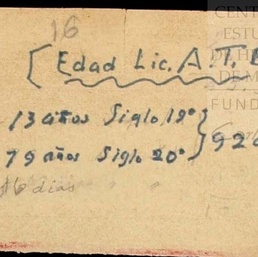 16
[Edad Lic. A. T.
13 años Siglo 19º
79 años Siglo 20º } 92
16 dias
CENT
ESTU
DE H
DE M
FUND